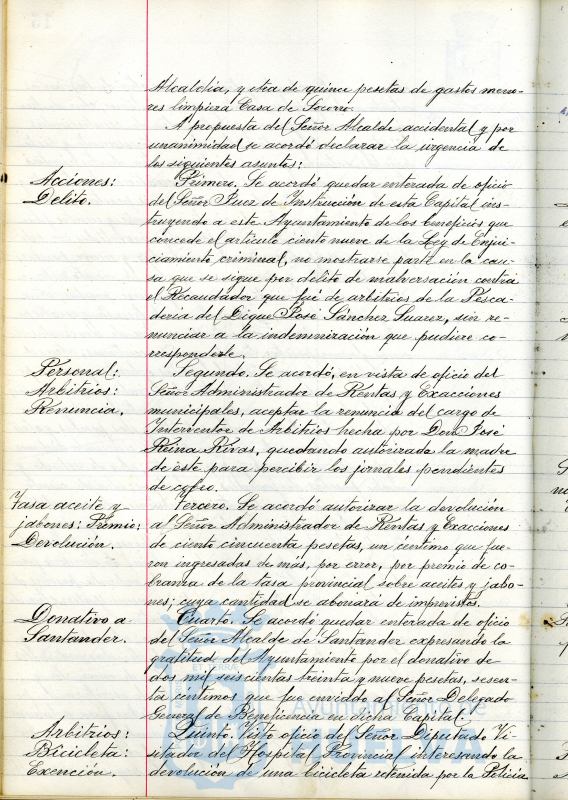 Alcaldía, y otra de quince pesetas de gastos meno-
res limpieza Casa de Socorro.
A propuesta del Señor Alcalde accidental y por
unanimidad se acordó declarar la urgencia de
los siguientes asuntos:
Acciones:
Delito.
Primero. Se acordó quedar enterada de oficio
del Señor Juez de Instrucción de esta Capital ins-
truyendo a este Ayuntamiento de los beneficios que
concede el artículo ciento nueve de la Ley de Enjui-
ciamiento criminal, no mostrarse parte en la cau-
sa que se sigue por delito de malversación contra
el Recaudador que fué de arbitrios de la Pesca-
dería del Dique José Sánchez Suarez, sin re-
nunciar a la indemnización que pudiere co-
rresponderle.
Personal:
Arbitrios:
Renuncia.
Segundo. Se acordó, en vista de oficio del
Señor Administrador de Rentas y Exacciones
municipales, aceptar la renuncia del cargo de
Interventor de Arbitrios hecha por Don José
Reina Rivas, quedando autorizada la madre
de éste para percibir los jornales pendientes
de cobro.
Tasa aceite y
jabones: Premio:
Devolución.
Tercero. Se acordó autorizar la devolución
al Señor Administrador de Rentas y Exacciones
de ciento cincuenta pesetas, un centimo que fue-
ron ingresadas de más, por error, por premio de co-
branza de la tasa provincial sobre aceites y jabo-
nes; cuya cantidad se abonará de imprevistos.
Donativo a
Santander.
Cuarto. Se acordó quedar enterada de oficio
del Señor Alcalde de Santander expresando la
gratitud del Ayuntamiento por el donativo de
dos mil seiscientas treinta y nueve pesetas, sesen-
ta céntimos que fue enviado al Señor Delegado
General de Beneficencia en dicha Capital.
Arbitrios:
Bicicleta:
Exención.
Quinto. Visto oficio del Señor Diputado Vi-
sitador del Hospital Provincial interesando la
devolución de una bicicleta retenida por la Policía